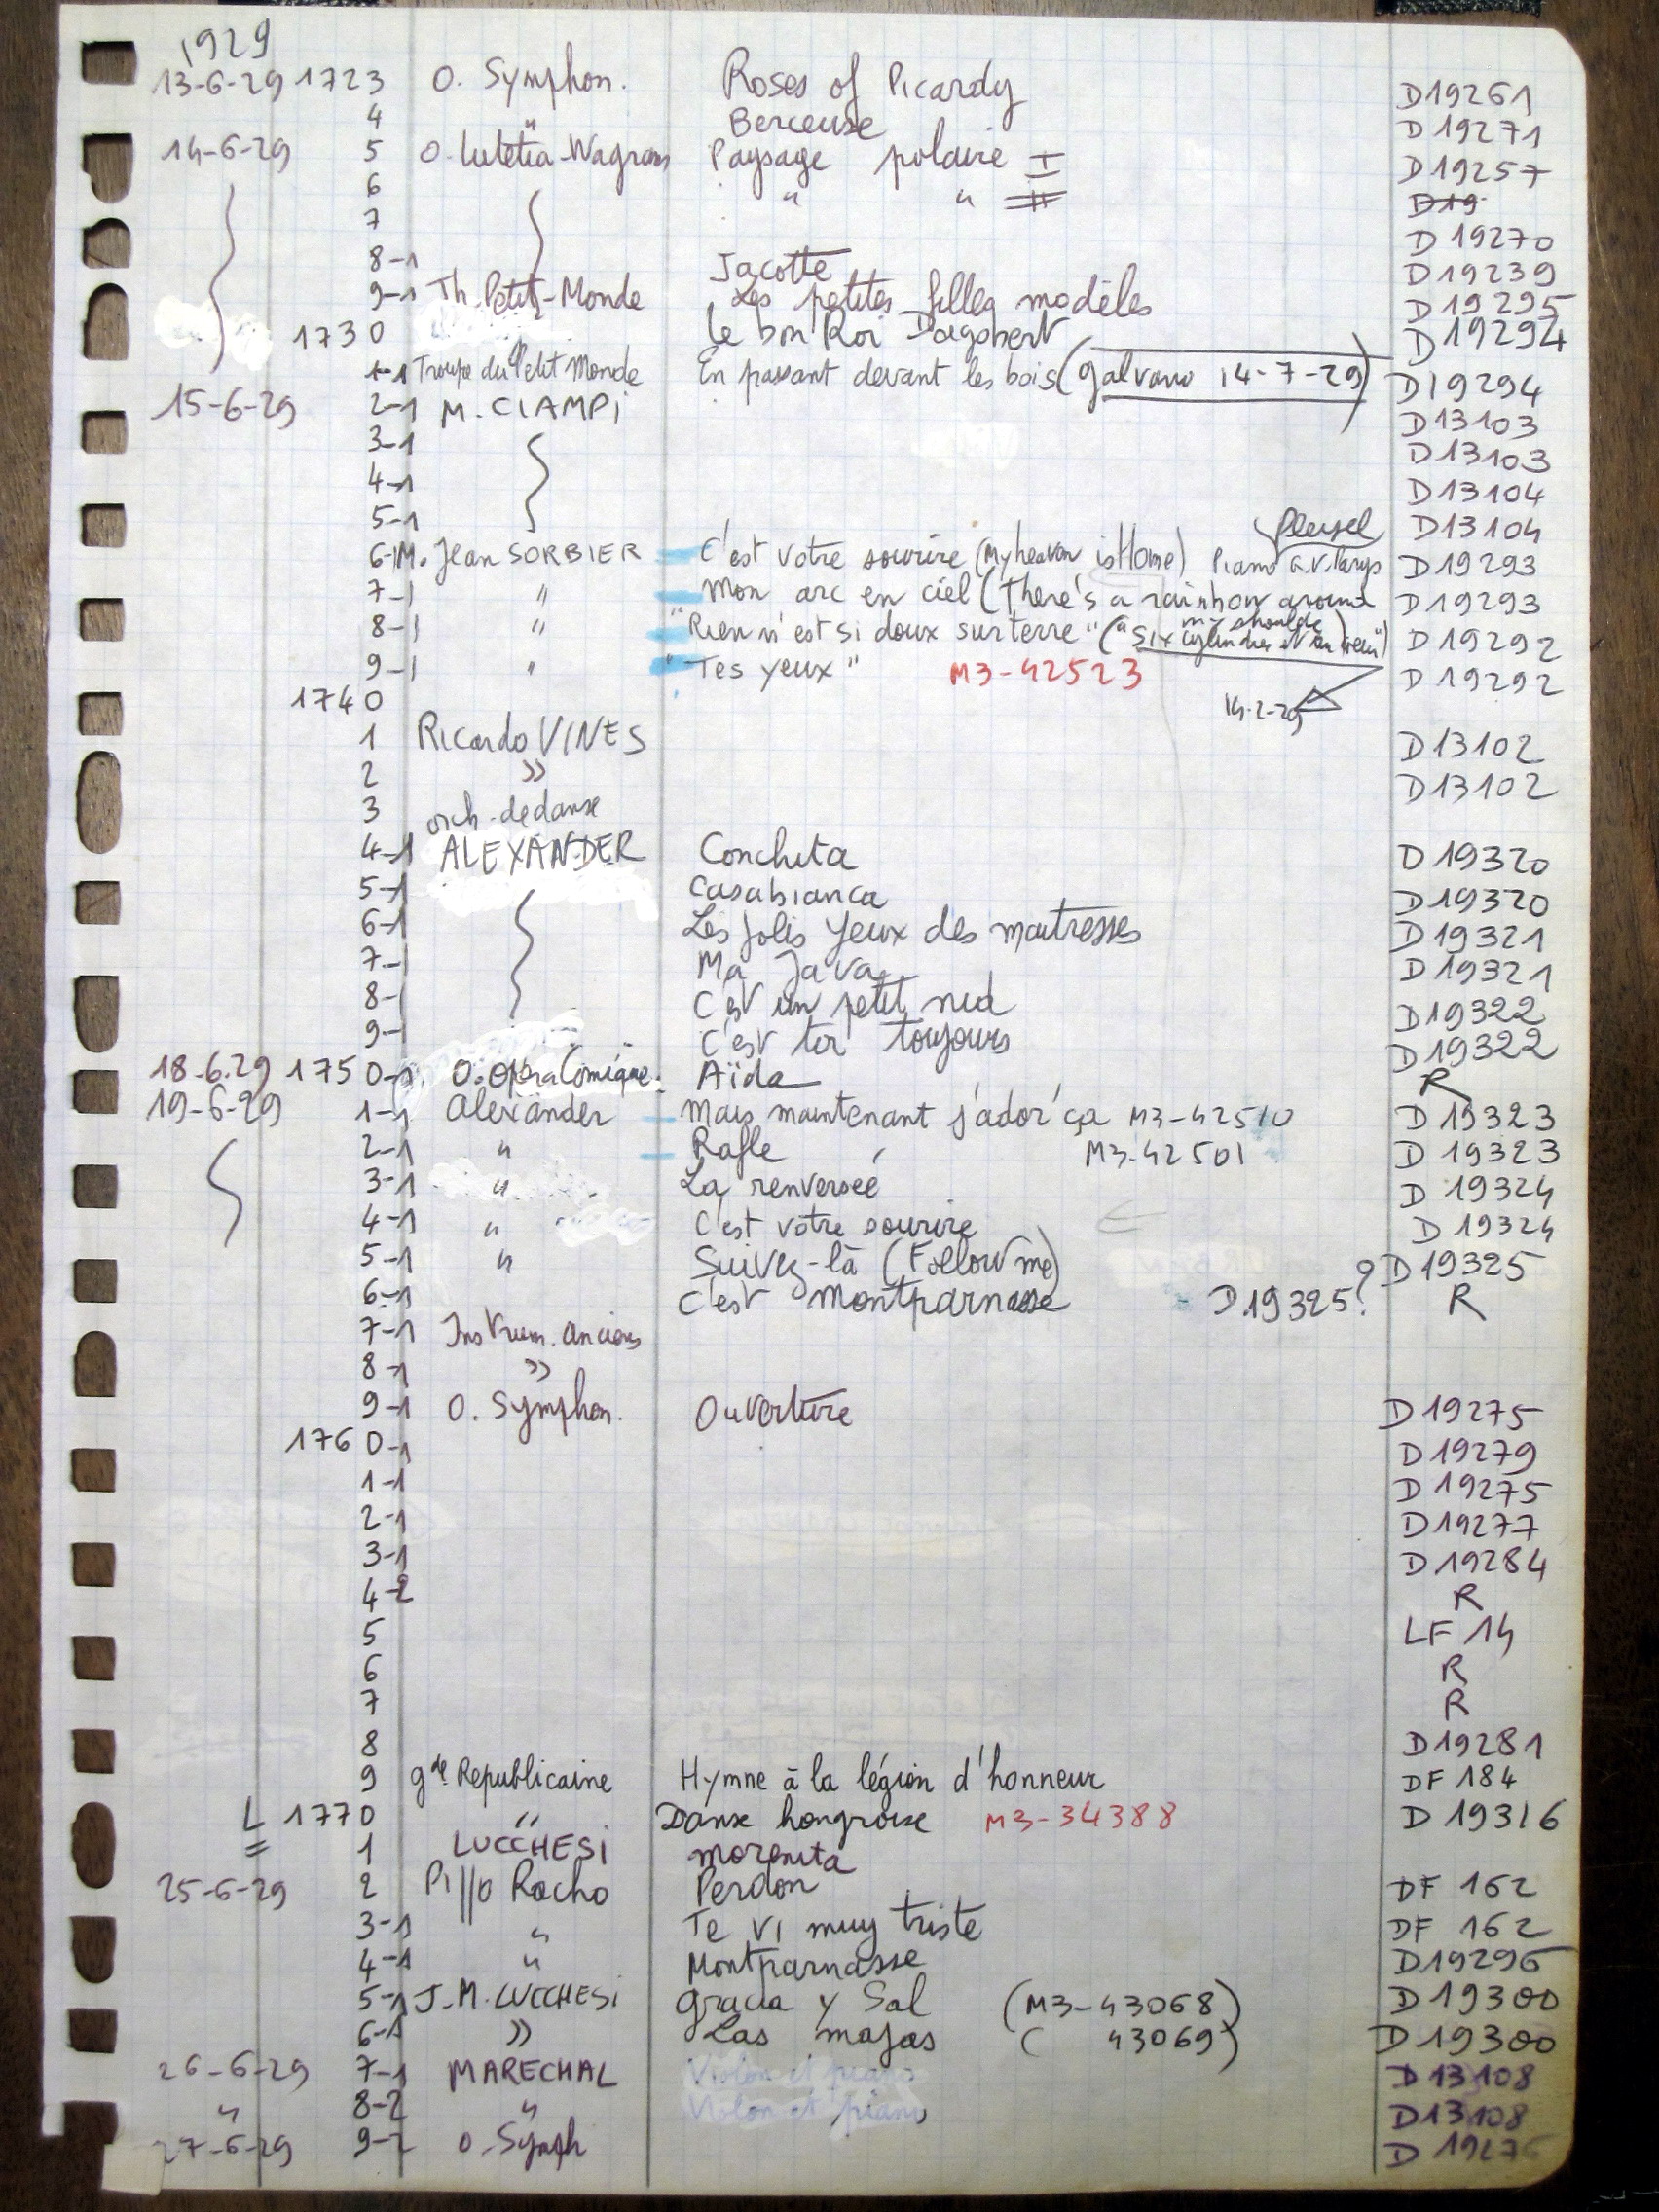 1929
13-6-29 1723 O. Symphon. Roses of Picardy D19261
4 " Berceuse D19271
14-6-29 5 O. Lutetia-Wagram Paysage polaire I D19257
6 " " II D19
7 D 19270
8-1 Jacotte D19239
9-1 Th. Petit-Monde Les petites filles modèles D19295
1730 Le bon Roi Dagobert D19294
1-1 Troupe du Petit Monde En passant devant les bois (galvano 14-7-29) D19294
15-6-29 2-1 M. CIAMPI D13103
3-1 D13103
4-1 D13104
5-1 pleyel D13104
6-1 M. Jean SORBIER C'est votre sourire (My heaven is Home) Piano D19293
7-1 " Mon arc en ciel (There's a rainbow around my shoulder) D19293
8-1 " "Rien n'est si doux sur terre" ("Six cylindres et un") D19292
9-1 " "Tes yeux" M3-42523 D 19292
1740 14-2-29
1 Ricardo VINES D13102
2 » D13102
3 orch. de danse
4-1 ALEXANDER Conchita D 19320
5-1 Casabianca D19320
6-1 Les jolis yeux des maitresses D19321
7-1 Ma Java D19321
8-1 C'est un petit nid D19322
9-1 C'est toi toujours D19322
18.6.29 1750-1 O. Opéra Comique. Aïda R
19-6-29 1-1 Alexander Mais maintenant j'ador'ça M3-42510 D 19323
2-1 " Rafle M3-42501 D 19323
3-1 " La renversée D 19324
4-1 " C'est votre sourire D 19324
5-1 " Suivez-là (Follow me) D19325
6-1 C'est Montparnasse D19325? R
7-1 Instrum. anciens
8-1 »
9-1 O. Symphon. Ouverture D19275
1760-1 D19279
1-1 D19275
2-1 D19277
3-1 D19284
4-2 R
5 LF 14
6 R
7 R
8 D19281
9 gde Republicaine Hymne à la légion d'honneur DF 184
L 1770 " Danse hongroise M3-34388 D 19316
= 1 LUCCHESI Morenita
25-6-29 2 Pillo Racho Perdon DF 162
3-1 " Te vi muy triste DF 162
4-1 " Montparnasse D19296
5-1 J.M. LUCCHESI Gracia y Sal (M3-43068) D19300
6-1 » Las majas ( 43069) D19300
26-6-29 7-1 MARECHAL Violon et piano D13108
" 8-2 " Violon et piano D13108
27-6-29 9-2 O. Symph D 19276